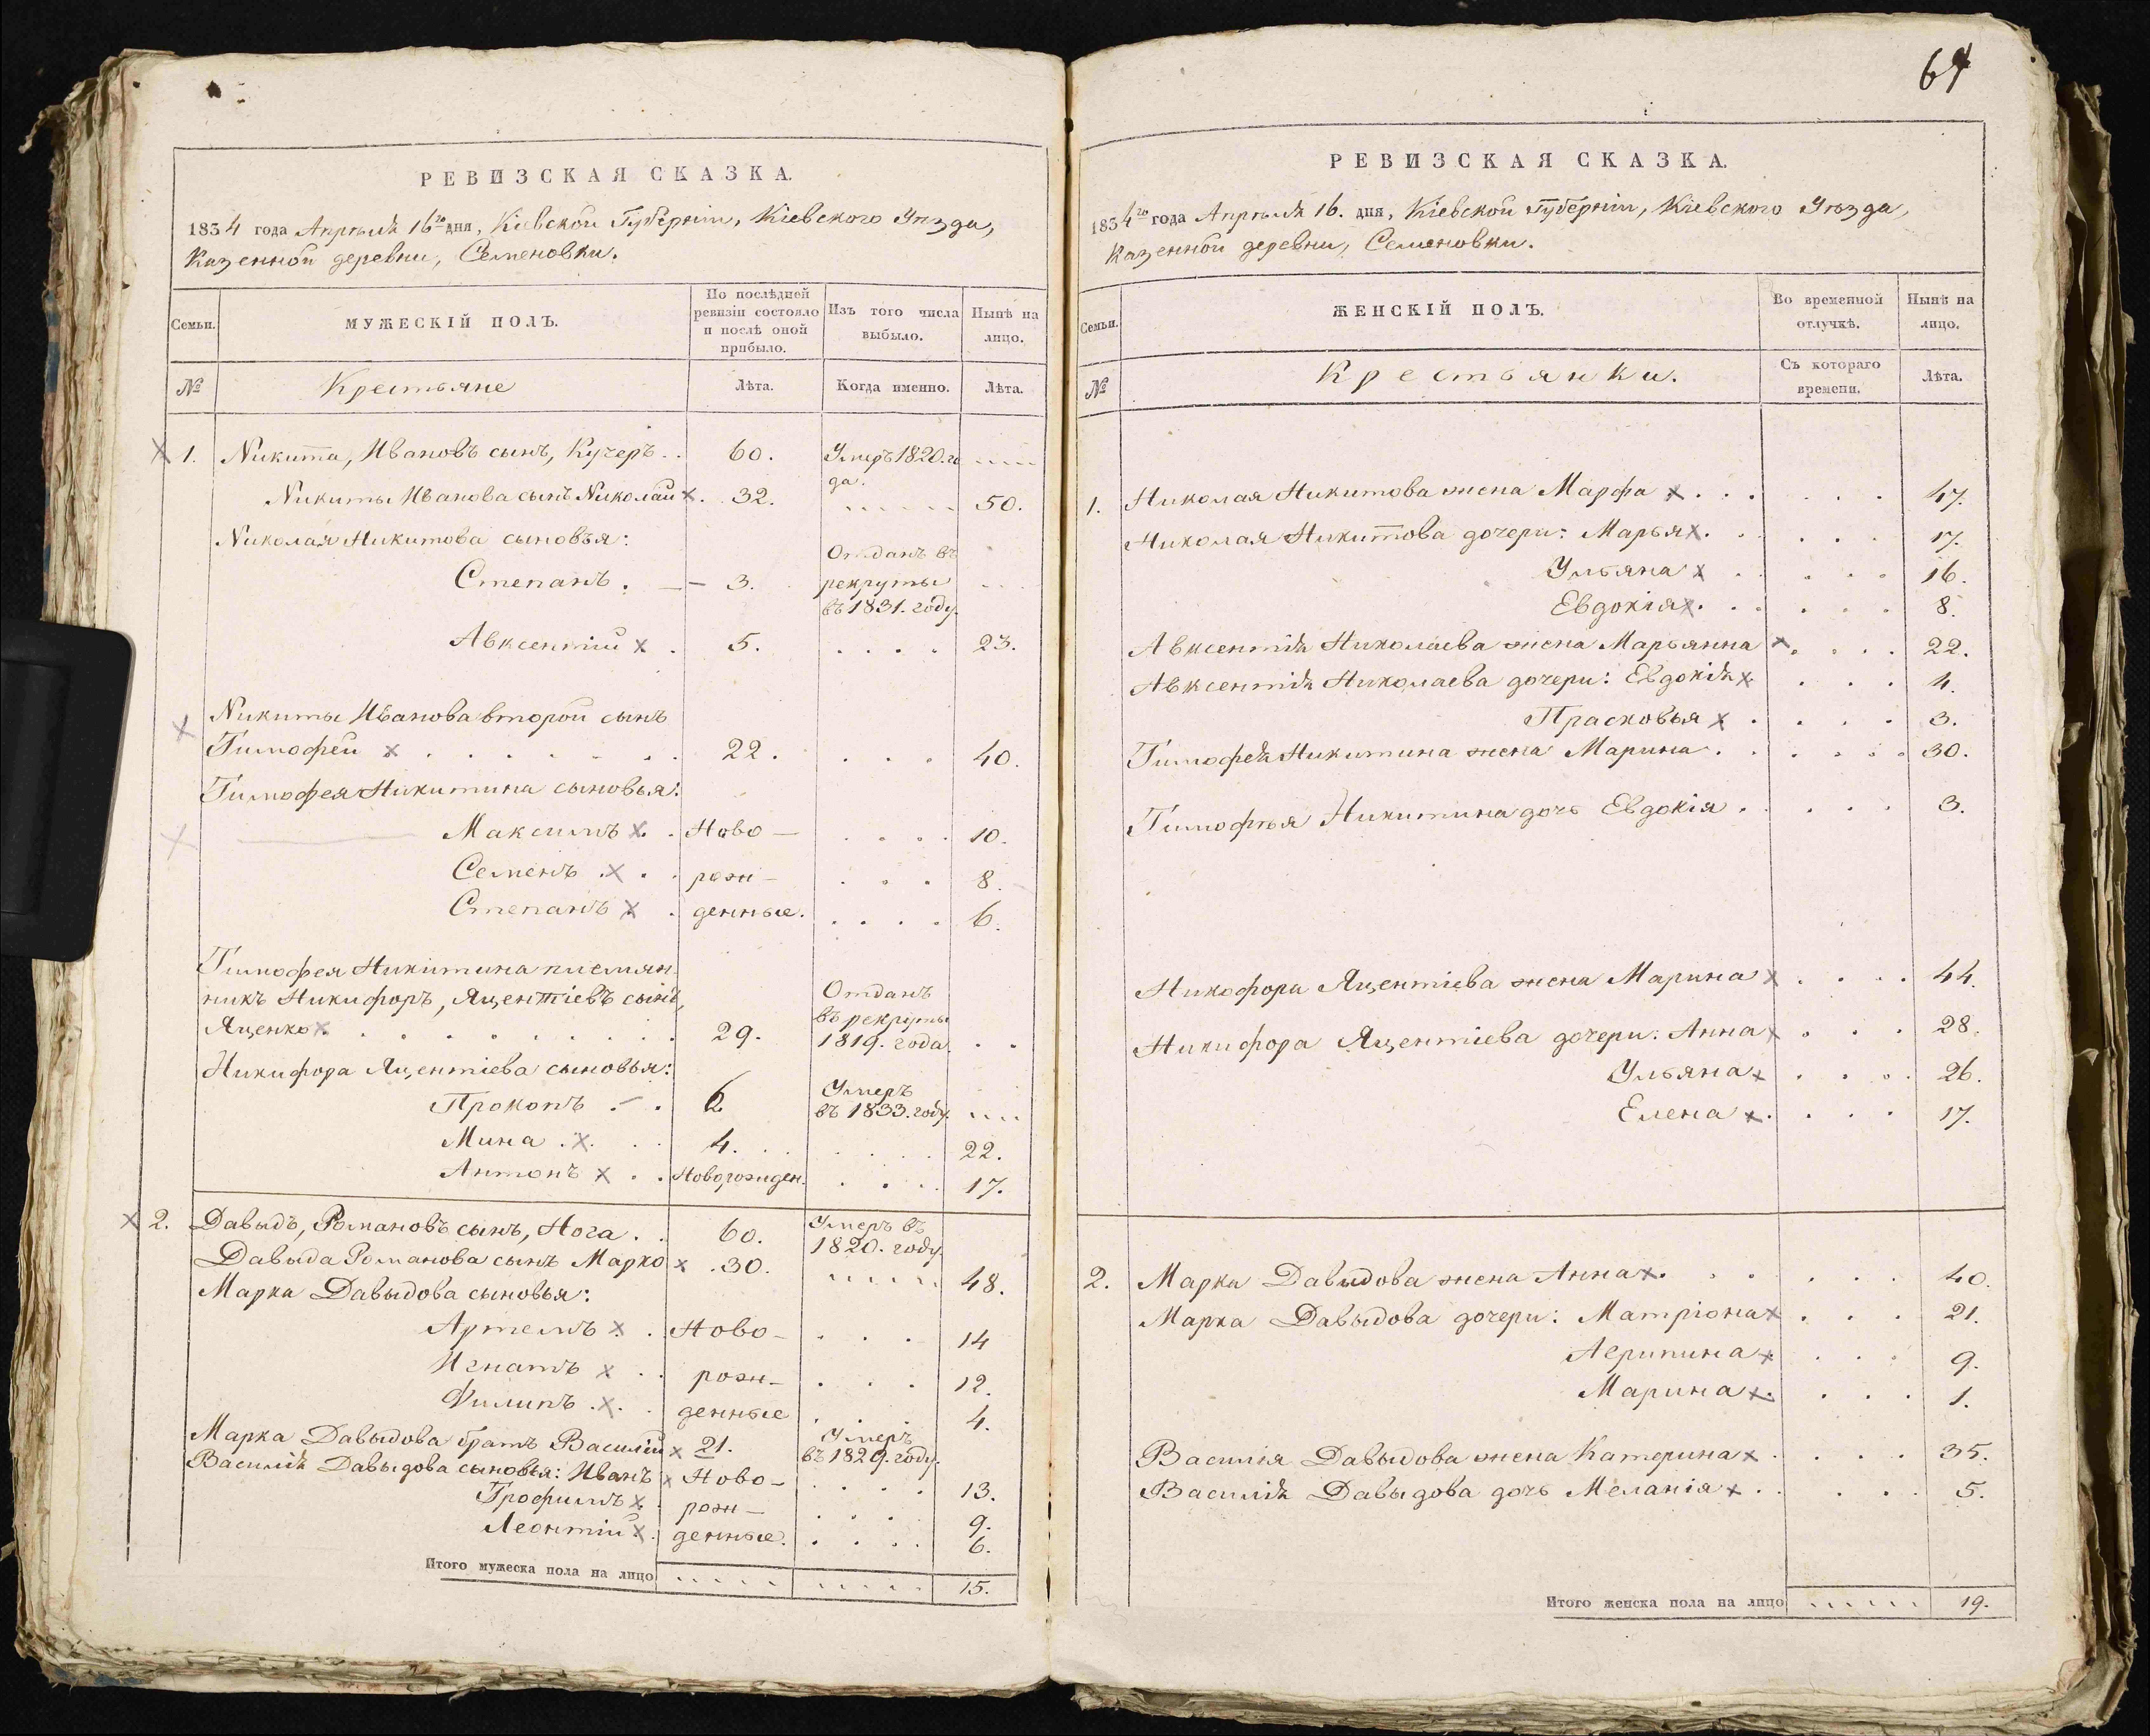 РЕВИЗСКАЯ СКАЗКА.
1834 года Апрѣля 16го дня, Кіевской Губерніи, Кіевского Уѣзда,
Казенной деревни, Семеновки.
Семьи.
МУЖЕСКІЙ ПОЛЪ.
По послѣдней
ревизіи состояло
и послѣ оной
прибыло.
Изъ того числа
выбыло.
Нынѣ на
лицо.
№
Крестьяне
Лѣта.
Когда именно.
Лѣта.
1. Никита, Ивановъ сынъ, Кучеръ . . 60. Умеръ 1820. го
да.
Никиты Иванова сынъ Николай х. 32. 50.
Николая Никитова сыновья:
Степанъ . — 3. Отданъ въ
рекруты
въ 1831. году.
Авксентій х . 5. . . . . 23.
Никиты Иванова второй сынъ
Тимофей х . . . . . . . 22. . . . 40.
Тимофея Никитина сыновья:
Максимъ х. . Ново — . . . . 10.
Семенъ .х . . рож — . . . 8.
Степанъ х . денные. . . . . 6.
Тимофея Никитина племян-
никъ Никифоръ, Яцентіевъ сынъ,
Яценко х. . . . . . . . . 29. Отданъ
въ рекруты
1819. года. . .
Никифора Яцентіева сыновья:
Прокопъ . . 6 Умеръ
въ 1833. году.
Мина . х. . . 4. . . . . . . 22.
Антонъ х . . Новорожден. . . . 17.
2. Давыдъ, Романовъ сынъ, Нога . . 60. Умеръ въ
1820. году.
Давыда Романова сынъ Марко х . 30. 48.
Марка Давыдова сыновья:
Артемъ х . Ново- . . . 14
Игнатъ х . . рож- . . . 12.
Филипъ . х. . денные . . 4.
Марка Давыдова братъ Василій х 21. Умеръ
въ 1829. году.
Василія Давыдова сыновья: Иванъ х Ново- . . . . 13.
Трофимъ х . рож — . . . 9.
Леонтій х. денные. . . . . 6.
Итого мужеска пола на лицо 15.
64
РЕВИЗСКАЯ СКАЗКА.
1834го года Апрѣля 16. дня, Кіевской Губерніи, Кіевского Уѣзда,
Казенной деревни, Семеновки.
Семьи.
ЖЕНСКІЙ ПОЛЪ.
Во временной
отлучкѣ.
Нынѣ на
лицо.
№
Крестьянки.
Съ котораго
времени.
Лѣта.
1. Николая Никитова жена Марфа х . . . . . . 47.
Николая Никитова дочери: Марья х. . . . . 17.
Ульяна х . . . . . 16.
Евдокія х. . . . . . 8.
Авксентія Николаева жена Марьянна х. . . . 22.
Авксентія Николаева дочери: Евдокія х. . . . 4.
Прасковья х . . . . 3.
Тимофея Никитина жена Марина . . . . . . 30.
Тимофѣя Никитина дочь Евдокія . . . . . 3.
Никофора Яцентіева жена Марина х . . . . 44.
Никифора Яцентіева дочери: Анна х . . . 28.
Ульяна х . . . . 26.
Елена х. . . . 17.
2. Марка Давыдова жена Анна х. . . . . . . 40.
Марка Давыдова дочери: Матріона х . . . 21.
Агрипина х . . . 9.
Марина х. . . . 1.
Василія Давыдова жена Катерина х . . . . 35.
Василія Давыдова дочь Меланія х . . . . . 5.
Итого женска пола на лицо 19.